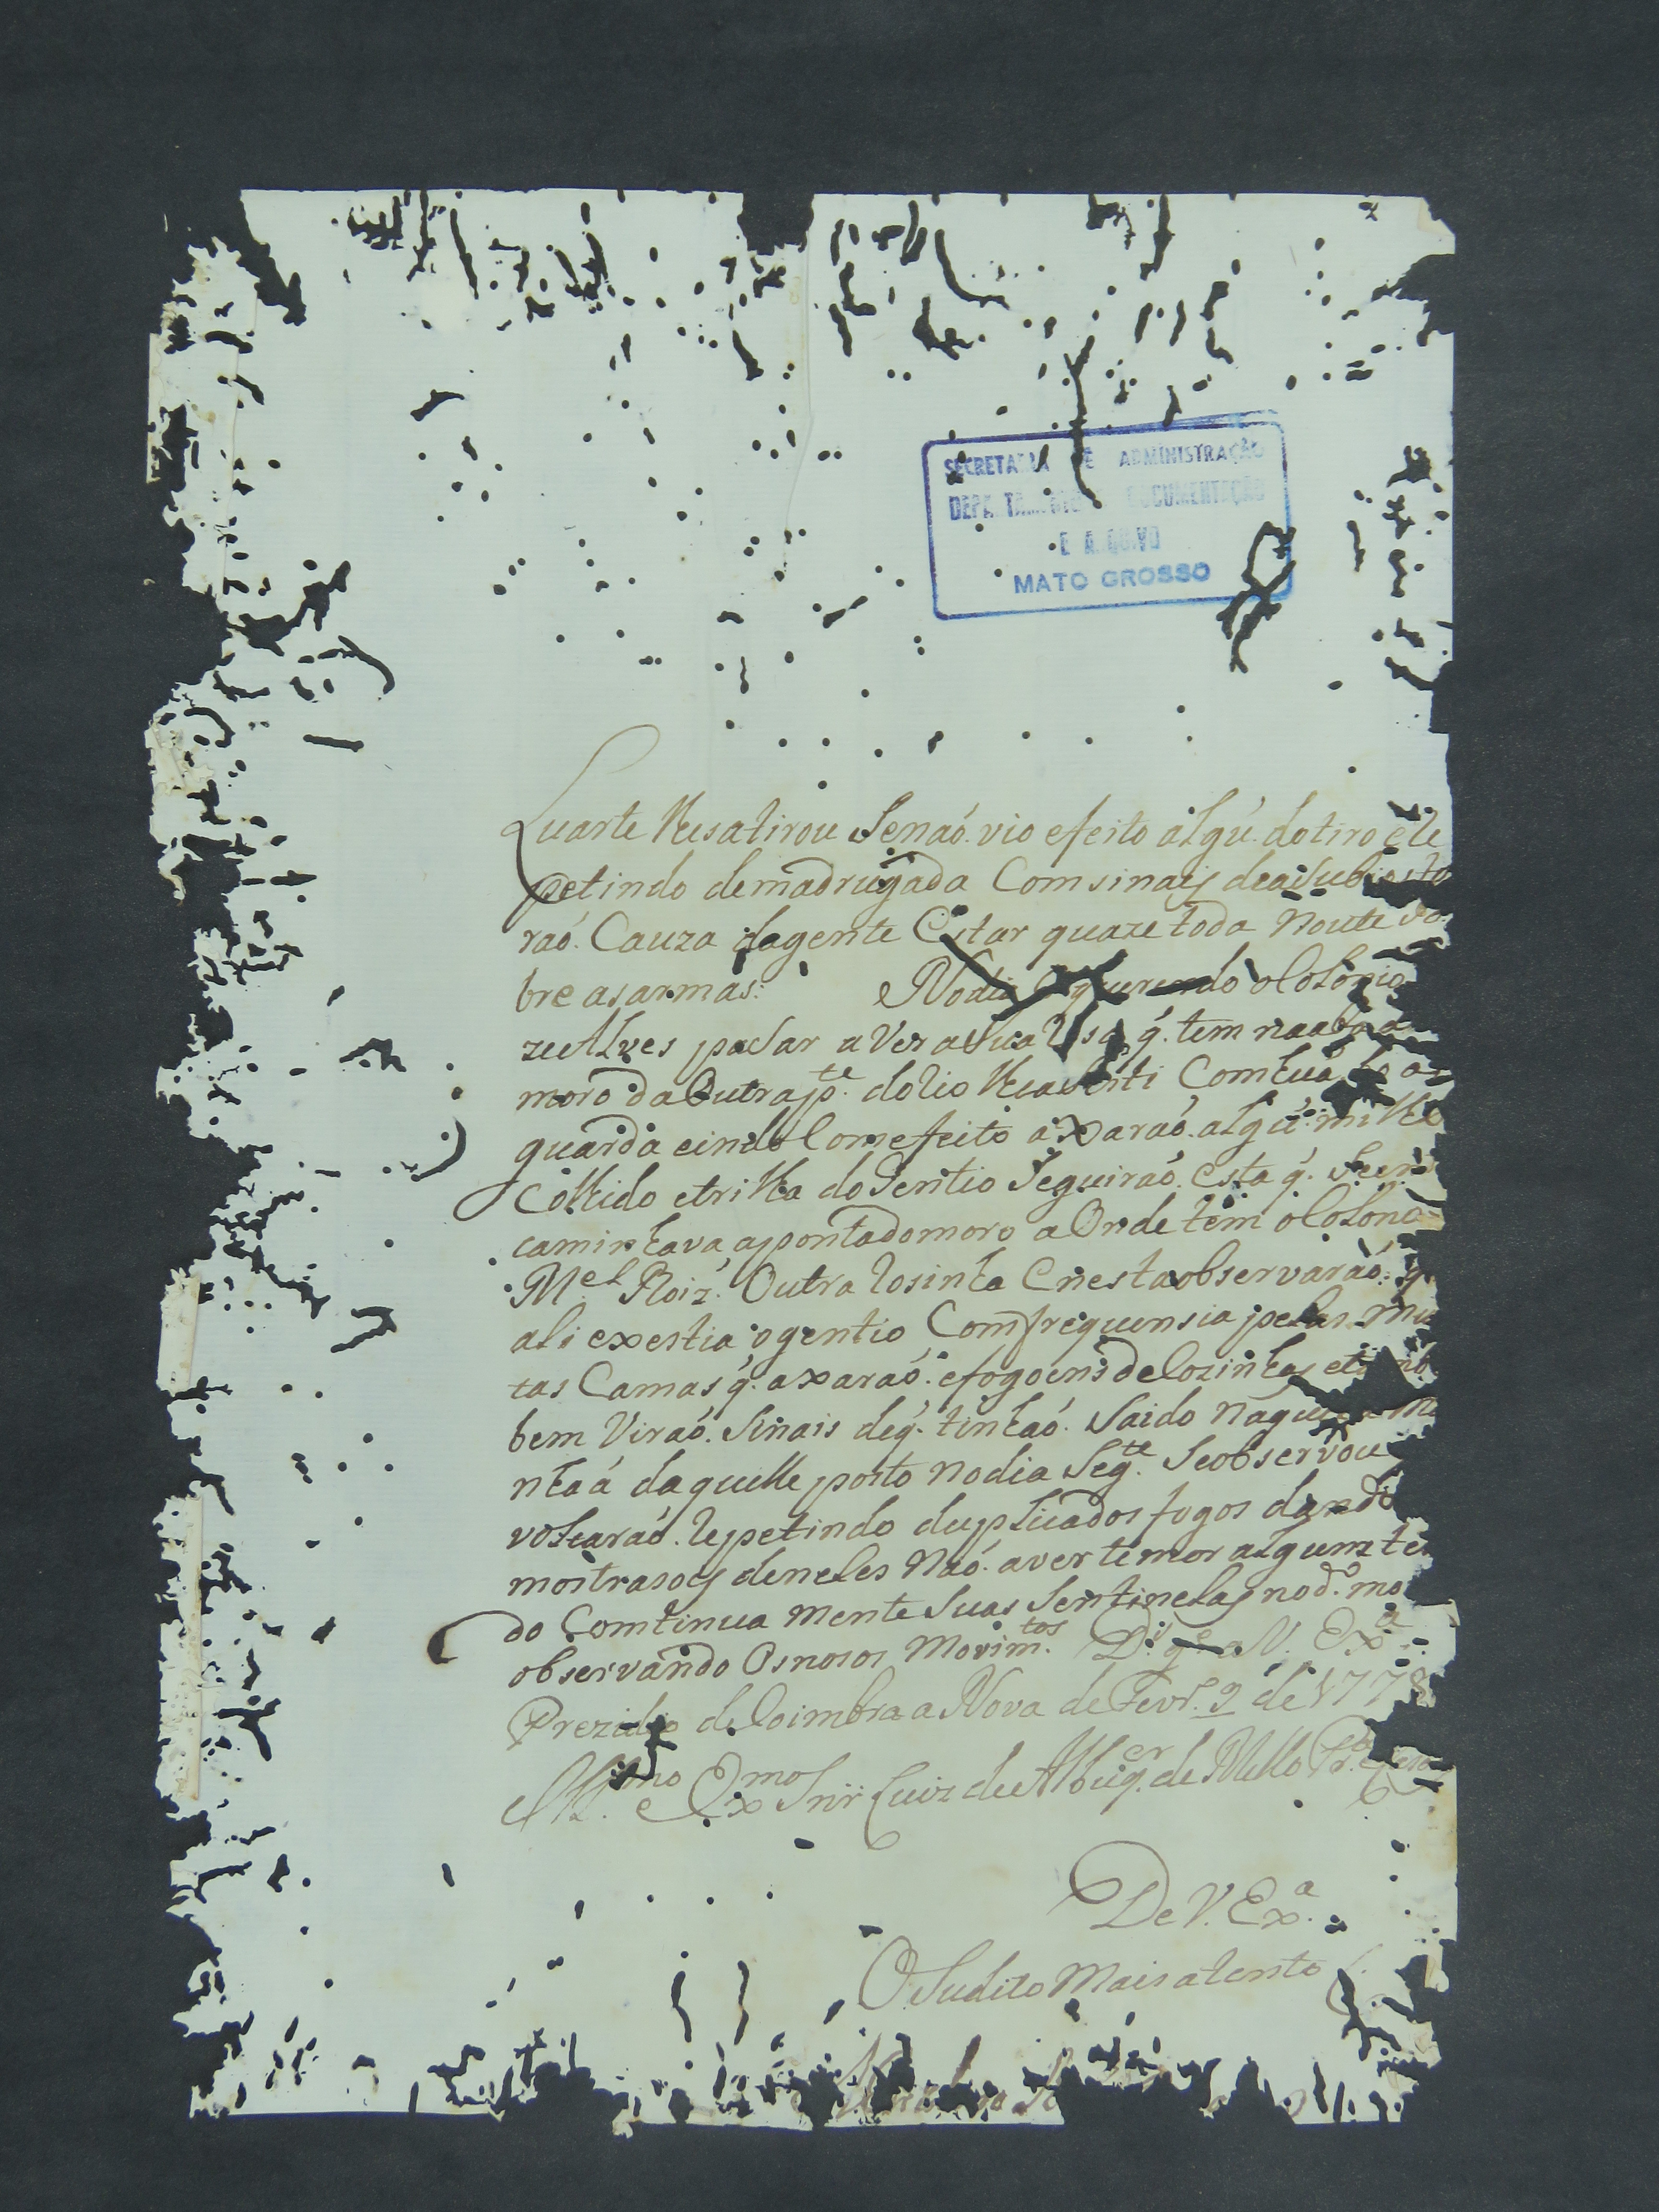 SECRETARIA DE ADMINISTRAÇÃO
DEPARTAMENTO DOCUMENTAÇÃO
E ARQUIVO
MATO GROSSO
Luarte lhesatirou Senaó. vio efeito algú. dotiro ele
petindo demadrugada Comsinais
raó. Cauza dagente Estar quaze toda Noute So
bre asarmas: Nodia oColonio
zeAlves pasar aVer q̃. tem
moro daOutra p.te doRio Comtua
guarda eindo Comefeito axaraó. algú. milho
Colhido etrilha doGentio Seguiraó. Esta q̃.
caminhava apontadomoro aOnde tem oColono
M.el Roiz. Outra Rosinha Enestaobservaraó. q.
ali exestia ogentio Comfrequensia pelas Mu
tas Camas q̃. axaraó. efogoens deCozinhas
bem Viraó. Sinais deq̃. tinhaó. Saido
nhaá daquelle posto nodia Seg.te Seobservou
voltaraó. Repetindo duplicados fogos dando
mostrasoes deneles Naó. aver temor algum te
do Comtinua mente Suas Sentinelas nod.o mo
observando Osnosos Movim.tos D.s g.e aV. Ex.a
Prezidio deCoimbra aNova deFevr.o 9 de 1778
Ill.mo e Ex.mo Snr̃ Luiz deAlbuq.er deMello Pr.a
De V. Ex.a
OSudito Mais atento